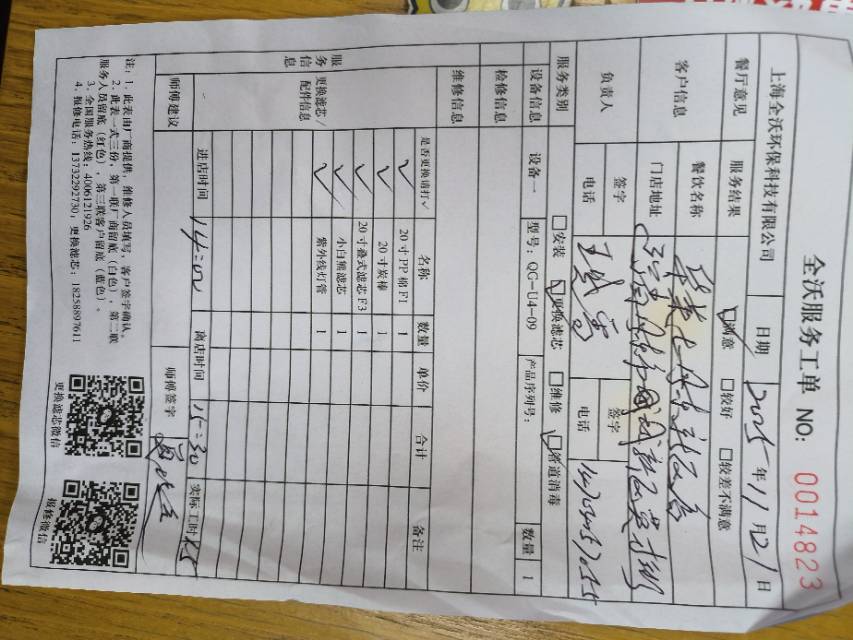 全沃服务工单 NO: 0014823
上海全沃环保科技有限公司 日期 2025年11月21日
餐厅意见 服务结果 ☑满意 □较好 □较差不满意
客户信息 餐饮名称
门店地址
负责人 签字 签字
电话 电话
服务类别 □安装 ☑更换滤芯 □维修 ☑管道消毒
设备信息 设备一 型号: QG-U4-09 产品序列号: 数量 1
检修信息
维修信息
服务信息
更换滤芯/配件信息
是否更换请打√ 名称 数量 单价 合计 备注
✓ 20寸PP棉F1 1
✓ 20寸炭棒 1
✓ 20寸叠式滤芯F3 1
✓ 小白熊滤芯 1
✓ 紫外线灯管 1
进店时间 14:00 离店时间 15:30 实际工时 1.5
师傅建议 师傅签字
注: 1、此表由厂商提供，维修人员填写、客户签字确认。
2、此表一式三份，第一联厂商留底（白色），第二联
服务人员留底（红色），第三联客户留底（蓝色）。
3、全国服务热线: 4006121926
4、报修电话: 13732292730; 更换滤芯: 18258897611
更换滤芯微信
报修微信